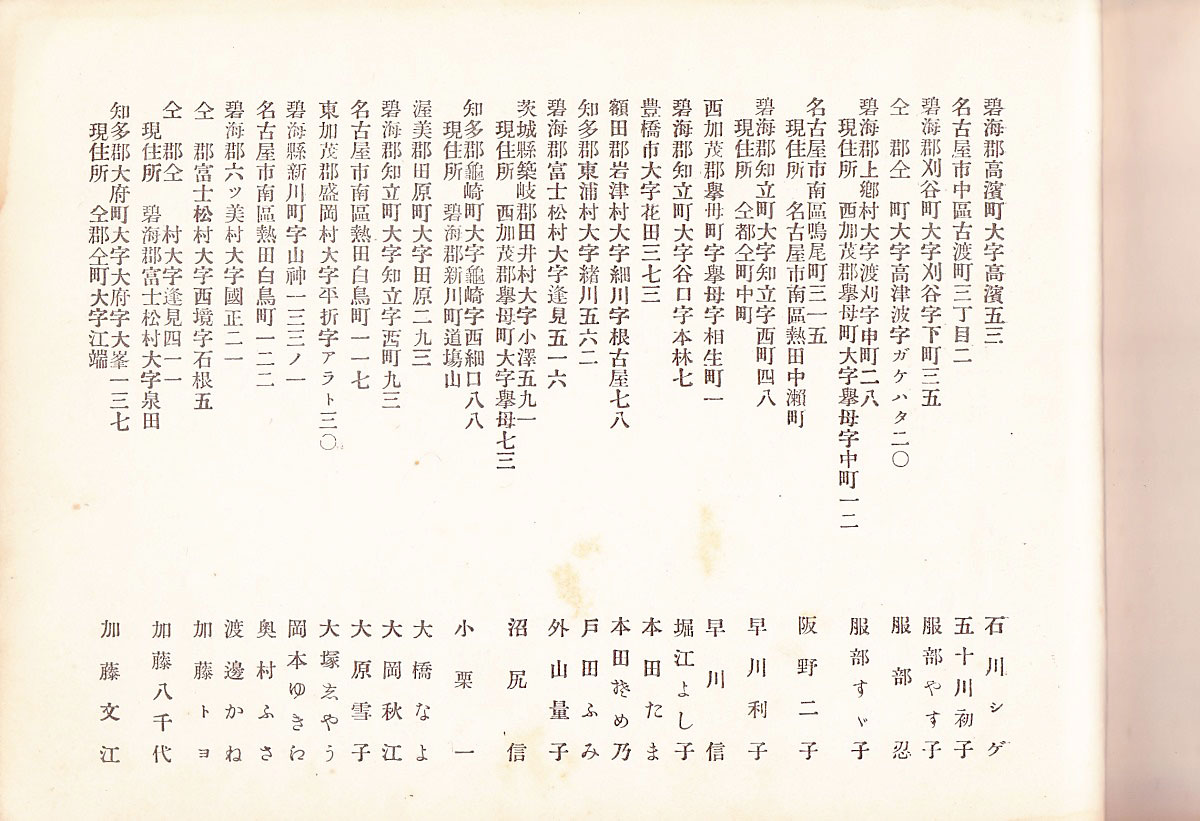 碧海郡高濱町大字高濱五三
石川シゲ
名古屋市中區古渡町三丁目二
五十川初子
碧海郡刈谷町大字刈谷字下町三五
服部やす子
仝　郡仝　町大字高津波字ガケハタ二〇
服部忍
碧海郡上鄕村大字渡刈字申町二八
現住所　西加茂郡擧母町大字擧母字中町一二
服部すゞ子
名古屋市南區鳴尾町三一五
現住所　名古屋市南區熱田中瀨町
阪野二子
碧海郡知立町大字知立字西町四八
現住所　仝都仝町中町
早川利子
西加茂郡擧母町字擧母字相生町一
早川信
碧海郡知立町大字谷口字本林七
堀江よし子
豊橋市大字花田三七三
本田たま
額田郡岩津村大字細川字根古屋七八
本田きめ乃
知多郡東浦村大字緖川五六二
戸田ふみ
碧海郡富士松村大字逢見五一六
外山量子
茨城縣築岐郡田井村大字小澤五九一
現住所　西加茂郡擧母町大字擧母七三
沼尻信
知多郡龜崎町大字龜崎字西細口八八
現住所　碧海郡新川町道塲山
小栗一
渥美郡田原町大字田原二九三
大橋なよ
碧海郡知立町大字知立字西町九三
大岡秋江
名古屋市南區熱田白鳥町一一七
大原雪子
東加茂郡盛岡村大字平折字アラト三〇
大塚ゑやう
碧海縣新川町字山神一三三ノ一
岡本ゆきに
名古屋市南區熱田白鳥町一二二
奧村ふさ
碧海郡六ツ美村大字國正二一
渡邊かね
仝　郡富士松村大字西境字石根五
加藤トヨ
仝　郡仝　村大字逢見四一一
現住所　碧海郡富士松村大字泉田
加藤八千代
知多郡大府町大字大府字大峯一三七
現住所　仝郡仝町大字江端
加藤文江